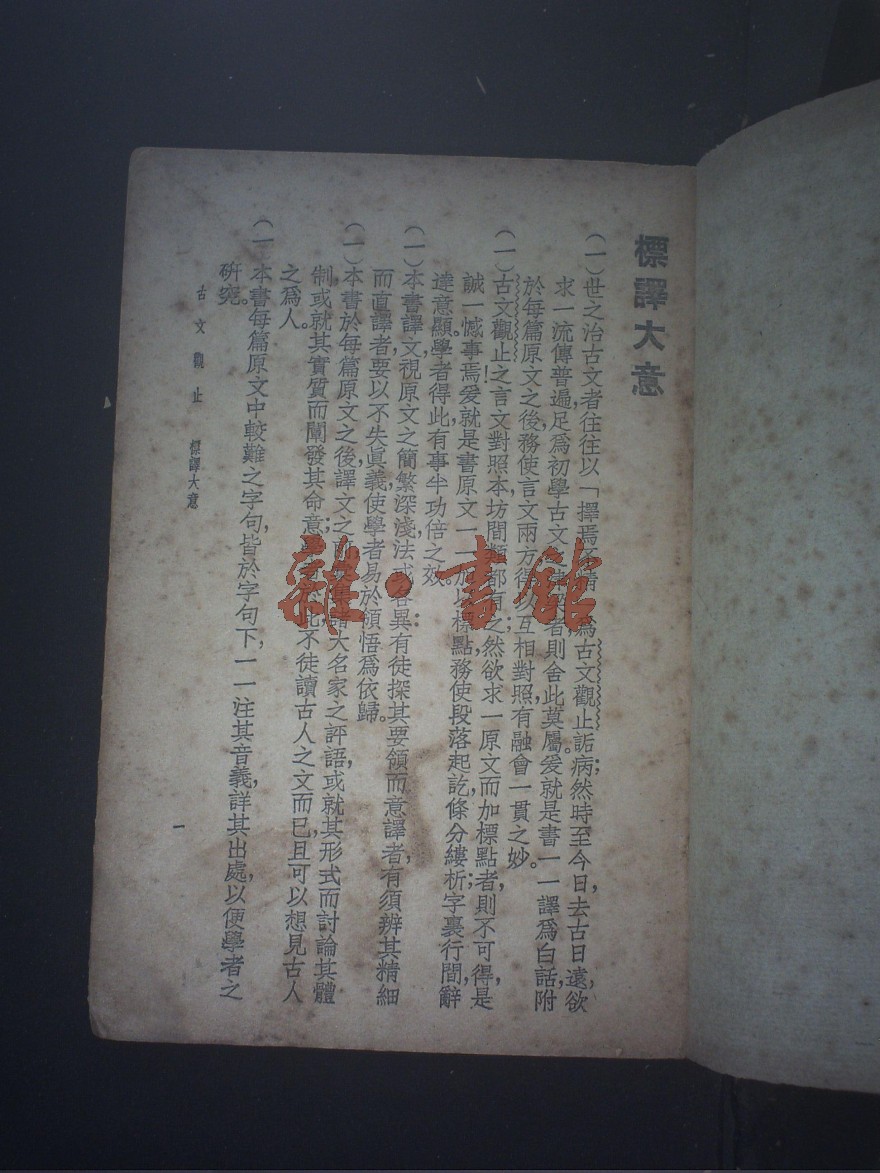 標譯大意
(一)世之治古文者往往以「擇焉不精」為古文觀止詬病;然時至今日,去古日遠,欲
求一流傳普遍,足為初學古文之者則舍此莫屬。爰就是書一一譯為白話,附
於每篇原文之後,務使言文兩方得以互相對照,有融會一貫之妙。
(一)古文觀止之言文對照本,坊間類都有之;然欲求一原文而加標點者,則不可得,是
誠一憾事焉!爰就是書原文一一加以標點,務使段落起訖,條分縷析;字裏行間,辭
達意顯。學者得此,有事半功倍之效。
(一)本書譯文,視原文之簡繁深淺,法或各異:有徒探其要領而意譯者,有須辨其精細
而直譯者,要以不失眞義,使學者易於領悟為依歸。
(一)本書於每篇原文之後,譯文之諸大名家之評語,或就其形式而討論其體
制,或就其實質而闡發其命意;不徒讀古人之文而已,且可以想見古人
之為人。
(一)本書每篇原文中較難之字句,皆於字句下,一一注其音義,詳其出處,以便學者之
研究。
古文觀止 標譯大意
一
雜·書館